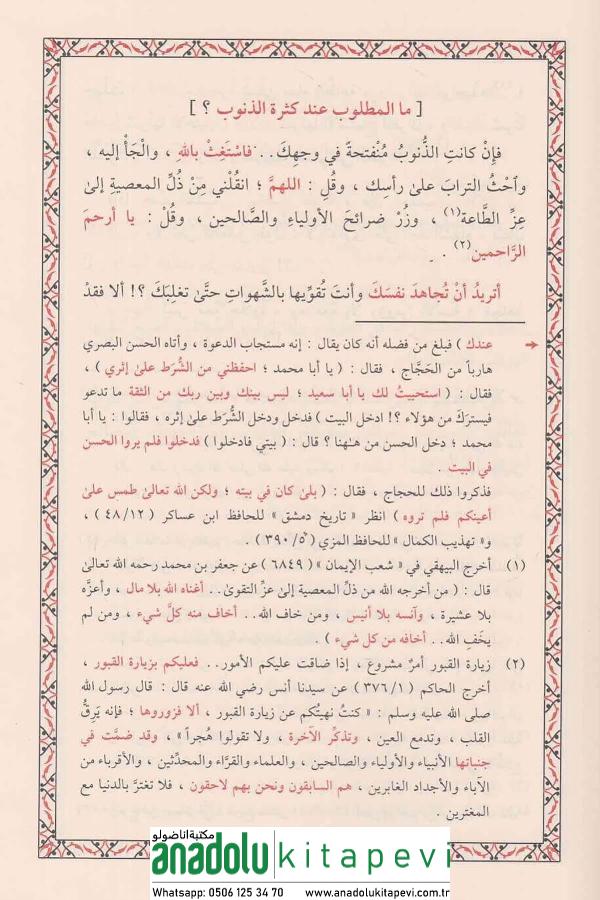 [ ما المطلوب عند كثرة الذنوب ؟ ]
فإِنْ كانتِ الذُّنوبُ مُنْفتحةً في وجهِكَ .. فاسْتَغِثْ باللهِ ، والْجَأْ إليه ،
وٱحْثُ الترابَ علىٰ رأسِك ، وقُلِ : اللهمَّ ؛ انقُلْني مِنْ ذُلِّ المعصيةِ إلىٰ
عِزِّ الطَّاعة(١) ، وزُرْ ضرائحَ الأولياءِ والصَّالحين ، وقُلْ : يا أرحمَ
الرَّاحمين(٢) .
أتريدُ أنْ تُجاهدَ نفسَكَ وأنتَ تُقوِّيها بالشَّهواتِ حتَّىٰ تغلِبَكَ ؟! ألا فقدْ
عندك ) فبلغ من فضله أنه كان يقال : إنه مستجاب الدعوة ، وأتاه الحسن البصري
هارباً من الحَجَّاج ، فقال : ( يا أبا محمد ؛ احفظني من الشُّرَط علىٰ إثري ) ،
فقال : ( استحييتُ لك يا أبا سعيد ؛ ليس بينك وبين ربك من الثقة ما تدعو
فيسترَكَ من هؤلاء ؟! ادخل البيت ) فدخل ودخل الشُّرَط علىٰ إثره ، فقالوا : يا أبا
محمد ؛ دخل الحسن من هـٰهنا ؟ قال : ( بيتي فادخلوا ) فدخلوا فلم يروا الحسن
في البيت .
فذكروا ذلك للحجاج ، فقال : ( بلىٰ كان في بيته ؛ ولكن الله تعالىٰ طمس علىٰ
أعينكم فلم تروه ) انظر « تاريخ دمشق » للحافظ ابن عساكر ( ٤٨/١٢ ) ،
و« تهذيب الكمال » للحافظ المزي ( ٣٩٠/٥ ) .
(١) أخرج البيهقي في « شعب الإيمان » ( ٦٨٤٩ ) عن جعفر بن محمد رحمه الله تعالىٰ
قال : ( من أخرجه الله من ذلِّ المعصية إلىٰ عزِّ التقوىٰ .. أغناه الله بلا مال ، وأعزَّه
بلا عشيرة ، وآنسه بلا أنيس ، ومن خاف الله .. أخاف منه كلَّ شيء ، ومن لم
يخَفِ الله .. أخافه من كل شيء ) .
(٢) زيارة القبور أمرٌ مشروع ، إذا ضاقت عليكم الأمور .. فعليكم بزيارة القبور ،
أخرج الحاكم ( ٣٧٦/١ ) عن سيدنا أنس رضي الله عنه قال : قال رسول الله
صلى الله عليه وسلم : « كنتُ نهيتُكم عن زيارة القبور ، ألا فزوروها ؛ فإنه يَرِقُّ
القلب ، وتدمع العين ، وتذكِّر الآخرة ، ولا تقولوا هُجراً » ، وقد ضمَّت في
جنباتها الأنبياء والأولياء والصالحين ، والعلماء والقرَّاء والمحدِّثين ، والأقرباء من
الآباء والأجداد الغابرين ، هم السابقون ونحن بهم لاحقون ، فلا تغترَّ بالدنيا مع
المغترين .
مكتبة اناضولو
anadolukitapevi
Whatsapp: 0506 125 34 70 www.anadolukitapevi.com.tr